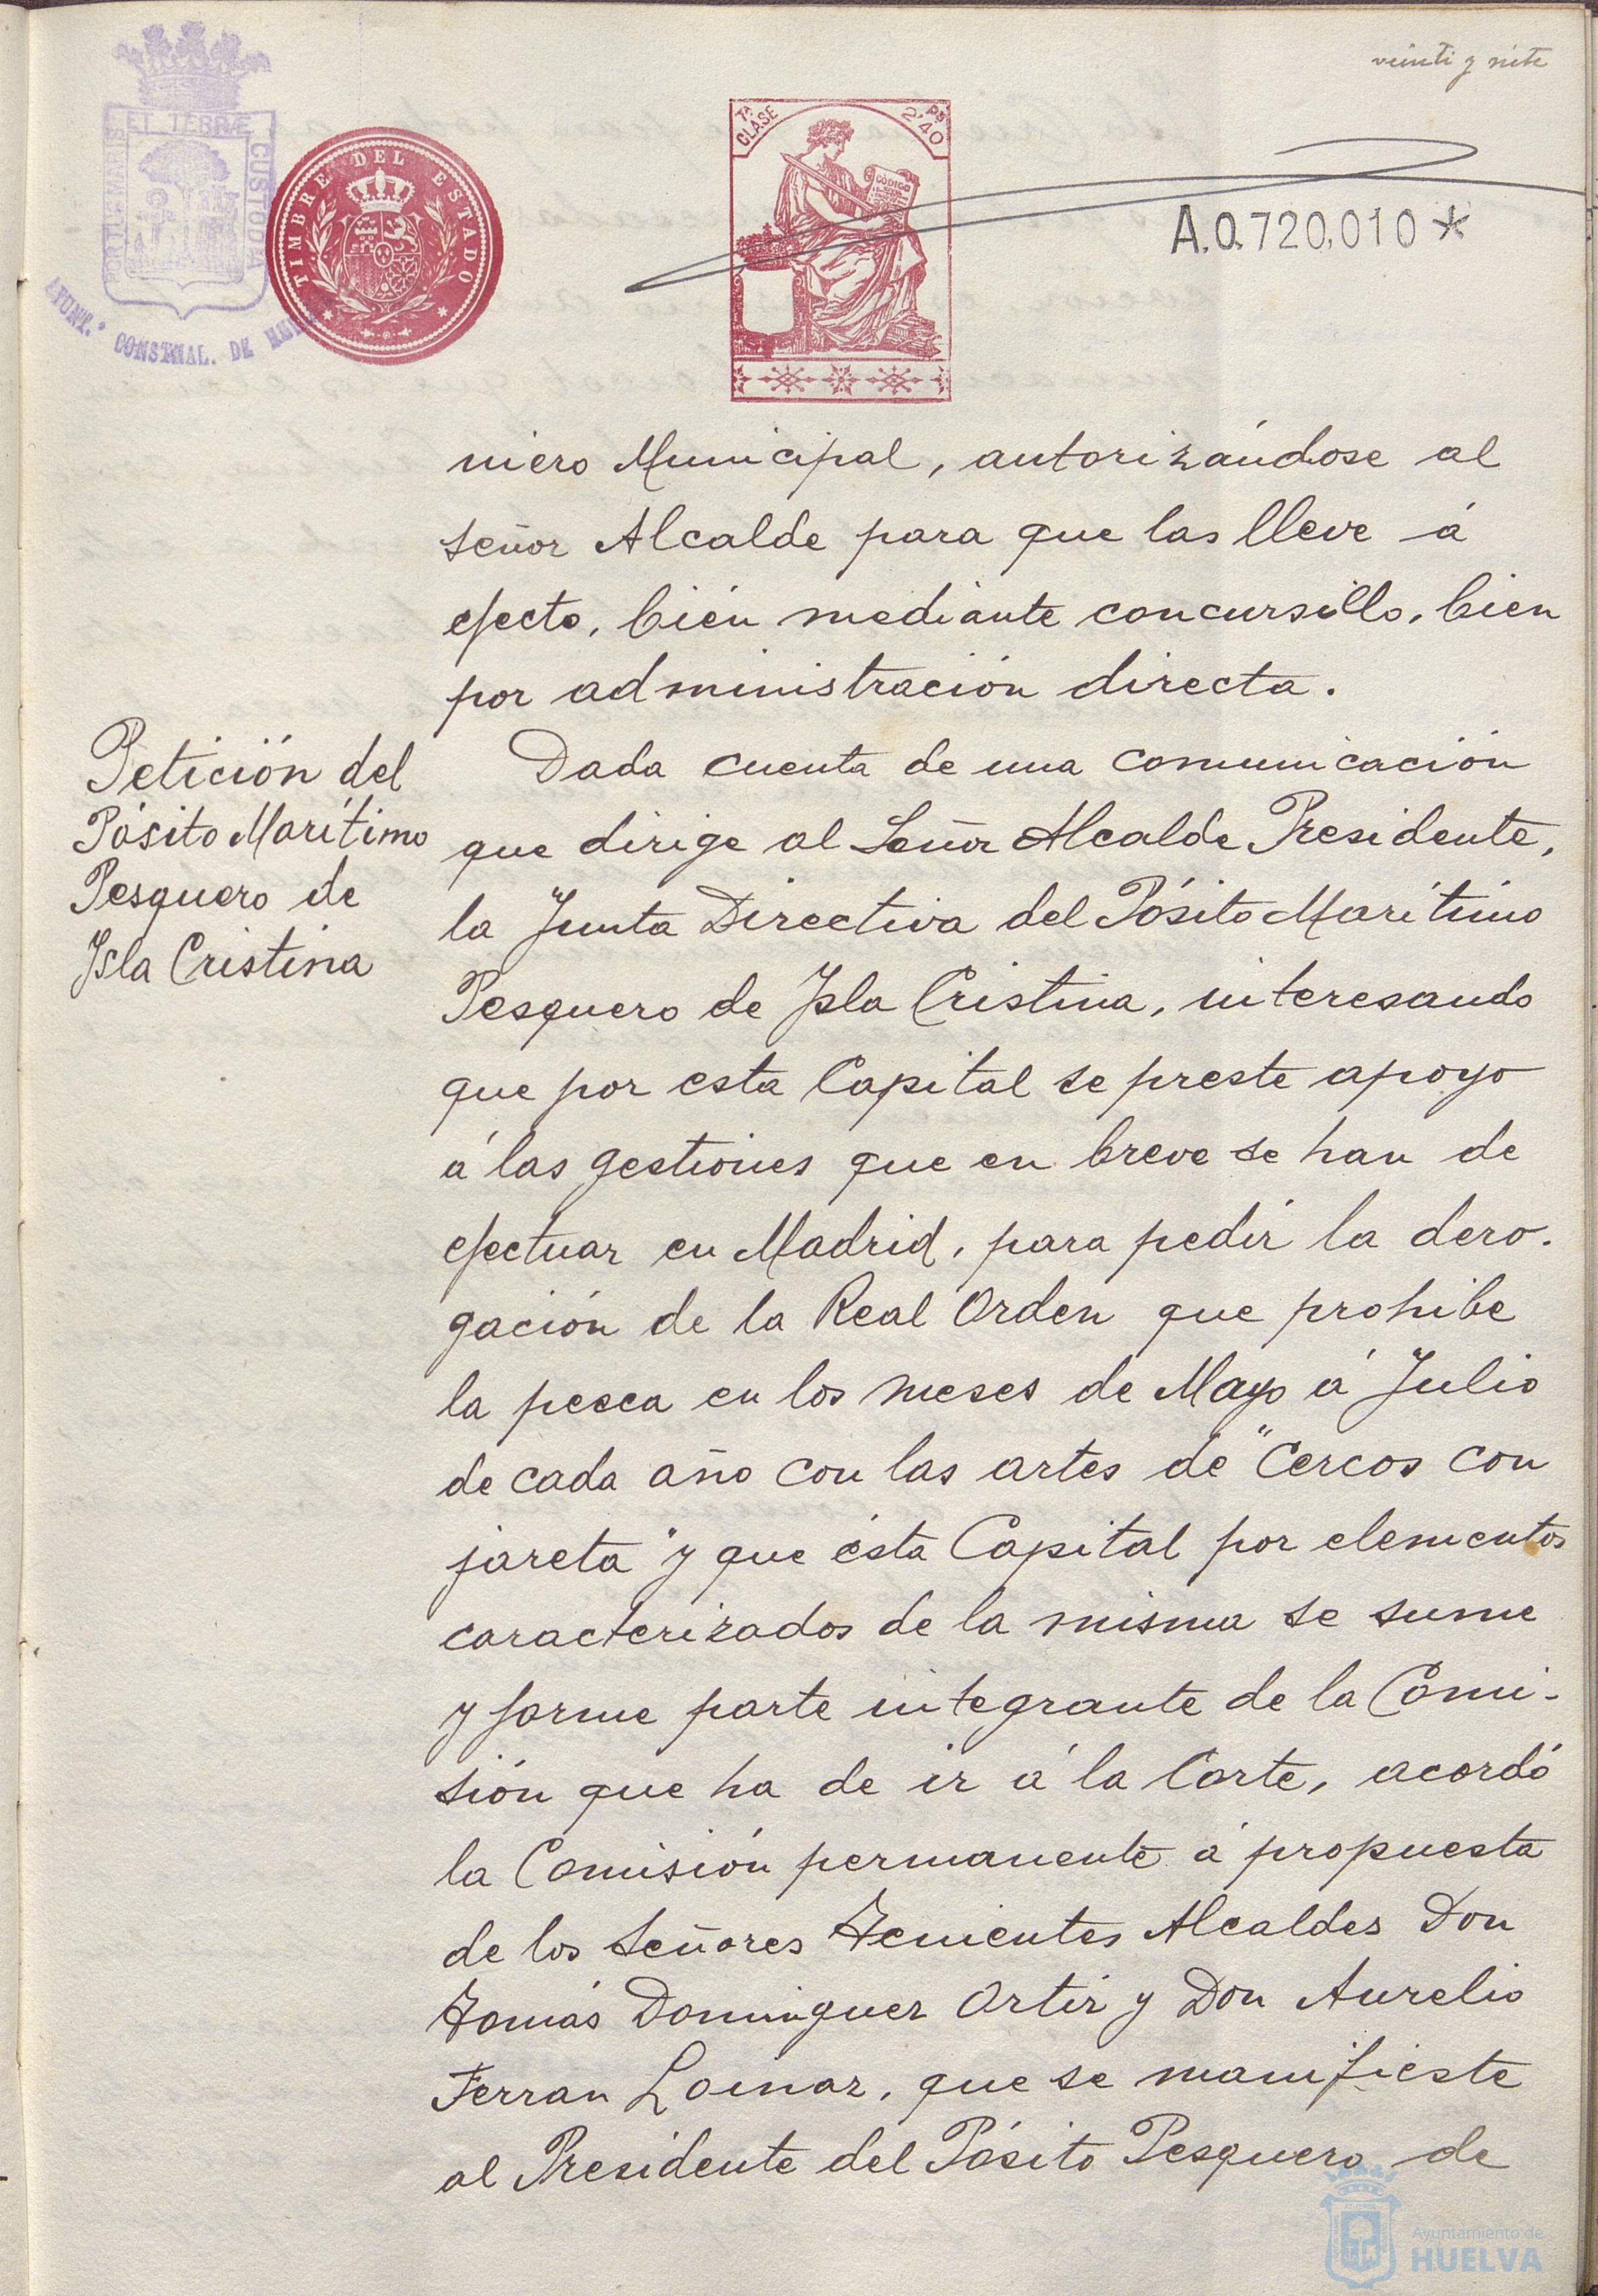 veinti y siete
PORTUS MARIS ET TERRÆ CUSTODIA
AYUNT.º CONSTNAL. DE HUELVA
TIMBRE DEL ESTADO
7ª CLASE
2,40 PS
CÓDIGO
A.0.720,010 *
niero Municipal, autorizándose al
señor Alcalde para que las lleve á
efecto, bién mediante concursillo, bien
por administración directa.
Petición del
Pósito Marítimo
Pesquero de
Isla Cristina
Dada cuenta de una comunicación
que dirige al Señor Alcalde Presidente,
la Junta Directiva del Pósito Marítimo
Pesquero de Isla Cristina, interesando
que por esta Capital se preste apoyo
á las gestiones que en breve se han de
efectuar en Madrid, para pedir la dero-
gación de la Real Orden que prohibe
la pesca en los meses de Mayo á Julio
de cada año con las artes de "Cercos con
jareta" y que ésta Capital por elementos
caracterizados de la misma se sume
y forme parte integrante de la Comi-
sión que ha de ir á la Corte, acordó
la Comisión permanente á propuesta
de los Señores Tenientes Alcaldes Don
Tomás Dominguez Ortiz y Don Aurelio
Ferran Loinaz, que se manifieste
al Presidente del Pósito Pesquero de
Ayuntamiento de
HUELVA